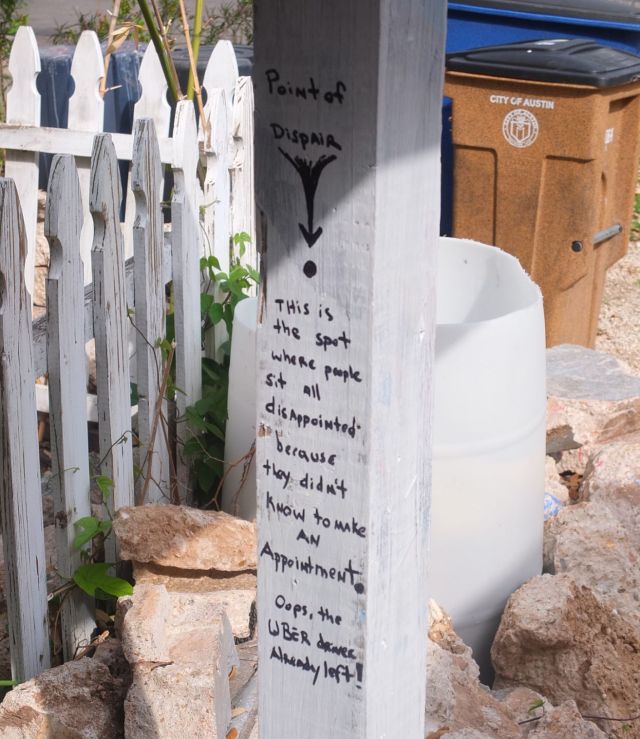 Point of
Dispair
THis is
the spot
where people
sit all
disAppointed
because
they didn't
KNow to mAke
AN
Appointment.
Oops, the
UBER driver
Already left!
CITY OF AUSTIN